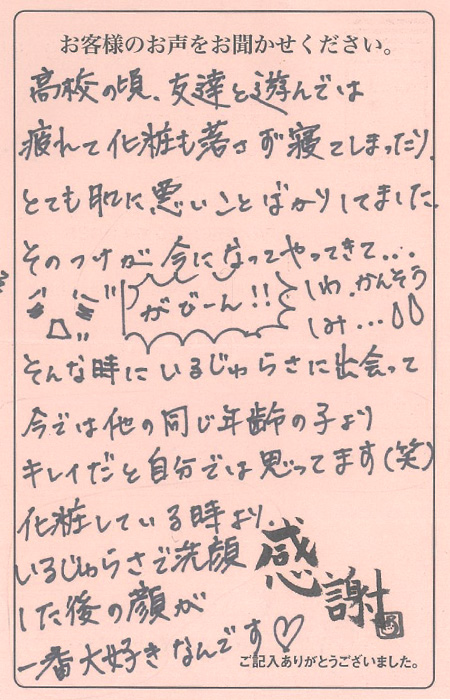 お客様のお声をお聞かせください。
高校の頃、友達と遊んでは
疲れて化粧も落さず寝てしまったり、
とても肌に悪いことばかりしてました。
そのつけが今になってやってきて...
がびーん!!
しわ、かんそう
しみ...
そんな時にいるじゅらさに出会って
今では他の同じ年齢の子より
キレイだと自分では思ってます(笑)
化粧している時より、
いるじゅらさで洗顔
した後の顔が
一番大好きなんです♡
感謝
ご記入ありがとうございました。